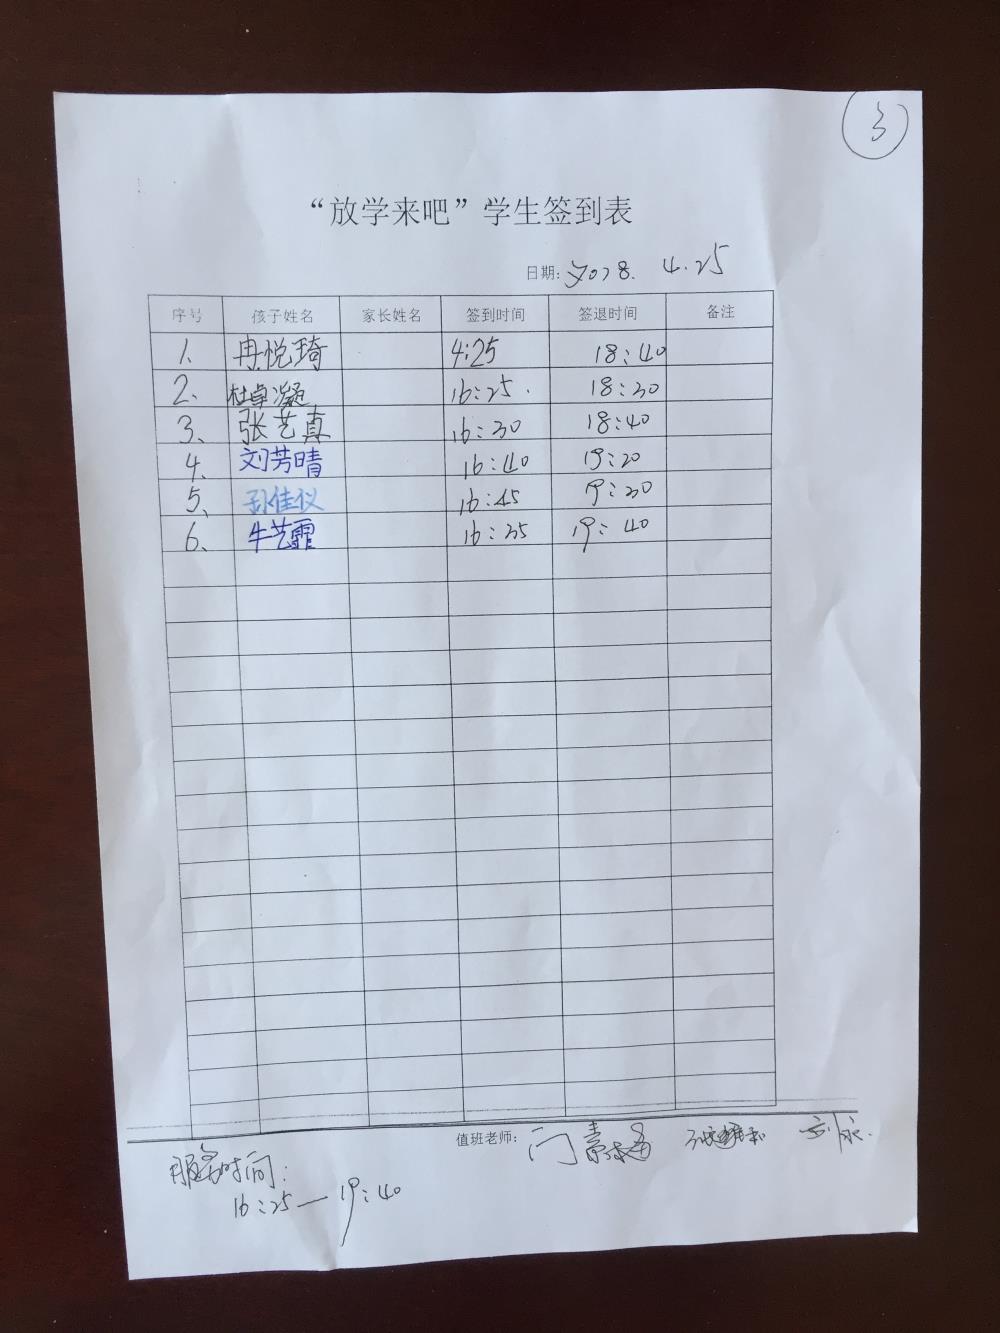 3
“放学来吧”学生签到表
日期: 2018. 4.25
序号 孩子姓名 家长姓名 签到时间 签退时间 备注
1. 冉悦琦 4:25 18:40
2. 杜卓凝 16:25. 18:30
3、 张艺真 16:30 18:40
4. 刘芳晴 16:40 19:20
5、 孙佳仪 16:45 19:30
6、 牛艺霏 16:35 19:40
值班老师: 门素梅 刘
服务时间:
16:25—19:40